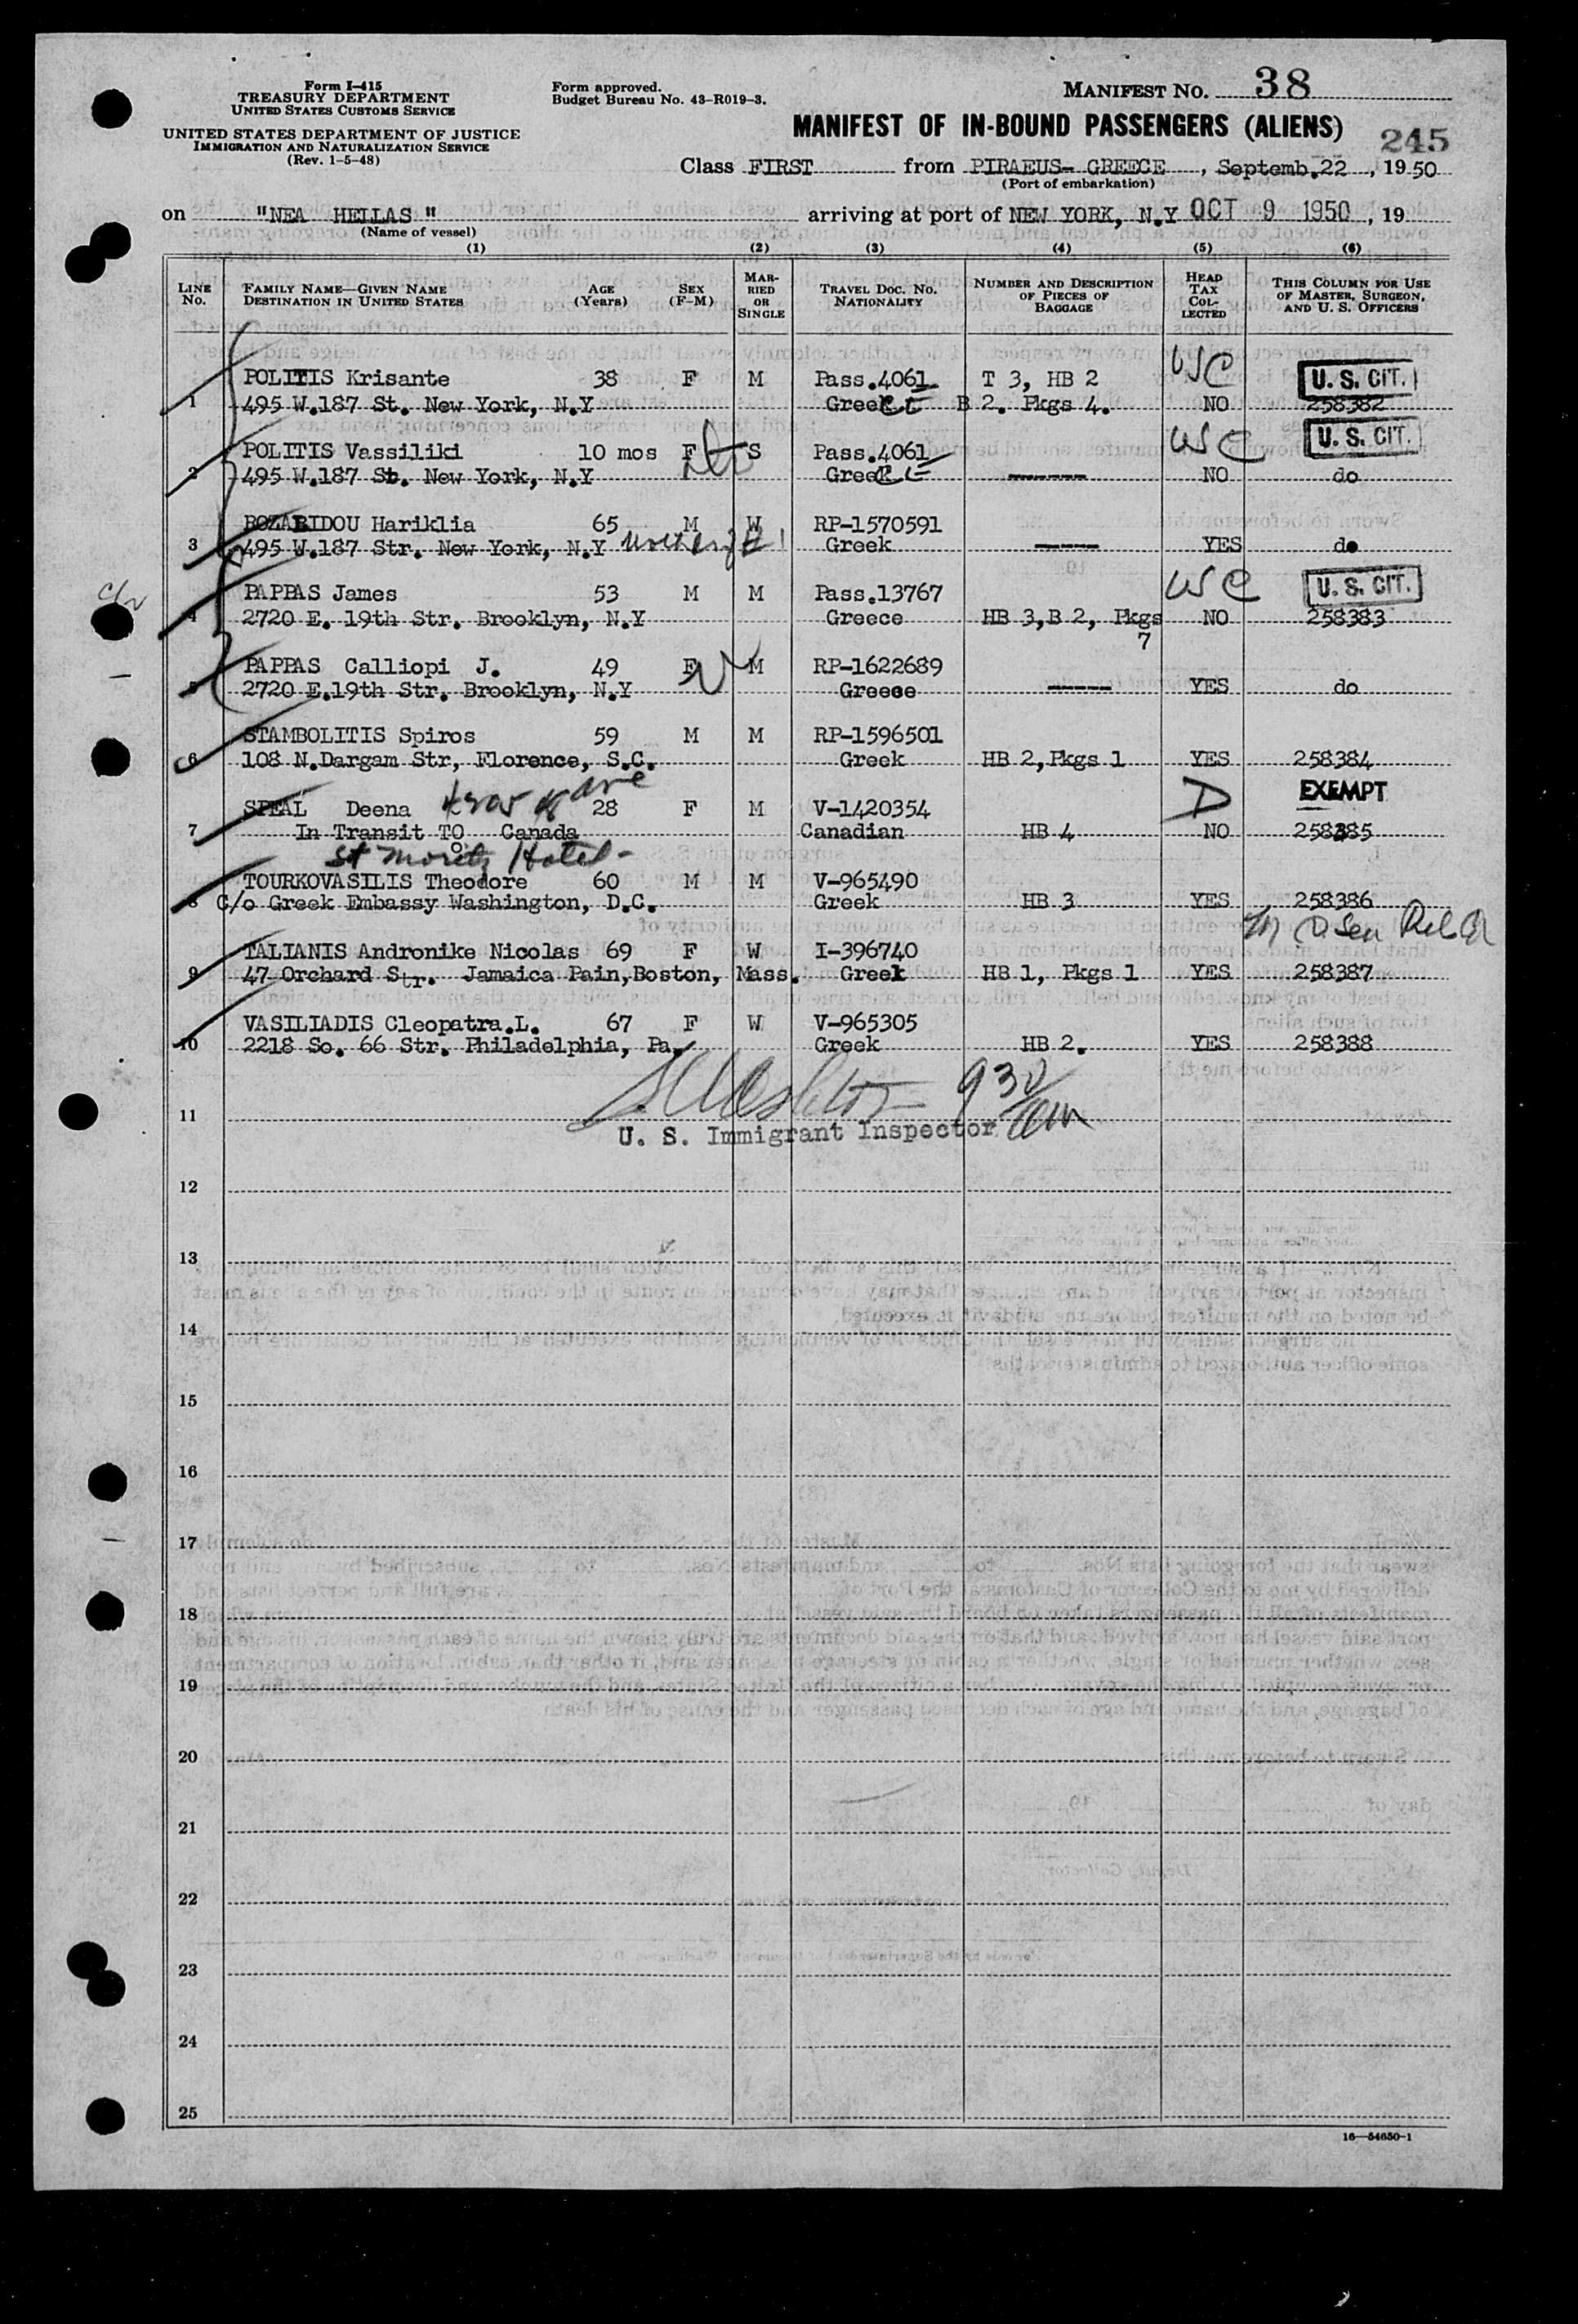 Form I-415
TREASURY DEPARTMENT
UNITED STATES CUSTOMS SERVICE
UNITED STATES DEPARTMENT OF JUSTICE
IMMIGRATION AND NATURALIZATION SERVICE
(Rev. 1-5-48)
Form approved.
Budget Bureau No. 43-R019-3.
MANIFEST NO. 38
MANIFEST OF IN-BOUND PASSENGERS (ALIENS) 245
Class FIRST from PIRAEUS- GREECE, Septemb.22, 1950
(Port of embarkation)
on "NEA HELLAS" arriving at port of NEW YORK, N.Y OCT 9 1950, 19
(Name of vessel)
(1) (2) (3) (4) (5) (6)
LINE No. FAMILY NAME—GIVEN NAME DESTINATION IN UNITED STATES AGE (Years) SEX (F-M) MARRIED OR SINGLE TRAVEL DOC. NO. NATIONALITY NUMBER AND DESCRIPTION OF PIECES OF BAGGAGE HEAD TAX COLLECTED THIS COLUMN FOR USE OF MASTER, SURGEON, AND U. S. OFFICERS
POLITIS Krisante 38 F M Pass.4061 T 3, HB 2 USC U. S. CIT.
1 495 W.187 St. New York, N.Y Greece B 2. Pkgs 4. NO 258382
POLITIS Vassiliki 10 mos F S Pass.4061 USC U. S. CIT.
2 495 W.187 St. New York, N.Y Greece ------ NO do
BOZARIDOU Hariklia 65 M W RP-1570591
3 495 W.187 Str. New York, N.Y Greek ----- YES do
PAPPAS James 53 M M Pass.13767 USC U. S. CIT.
4 2720 E. 19th Str. Brooklyn, N.Y Greece HB 3,B 2, Pkgs 7 NO 258383
PAPPAS Calliopi J. 49 F M RP-1622689
5 2720 E.19th Str. Brooklyn, N.Y Greece ----- YES do
STAMBOLITIS Spiros 59 M M RP-1596501
6 108 N.Dargam Str, Florence, S.C. Greek HB 2,Pkgs 1 YES 258384
SPEAL Deena 28 F M V-1420354 D EXEMPT
7 In Transit TO Canada Canadian HB 4 NO 258385
St Moritz Hotel-
TOURKOVASILIS Theodore 60 M M V-965490
8 C/o Greek Embassy Washington, D.C. Greek HB 3 YES 258386
TALIANIS Andronike Nicolas 69 F W I-396740
9 47 Orchard Str. Jamaica Pain,Boston, Mass. Greek HB 1, Pkgs 1 YES 258387
VASILIADIS Cleopatra.L. 67 F W V-965305
10 2218 So. 66 Str. Philadelphia, Pa. Greek HB 2. YES 258388
930 am
11 U. S. Immigrant Inspector
12
13
14
15
16
17
18
19
20
21
22
23
24
25
16—54650-1